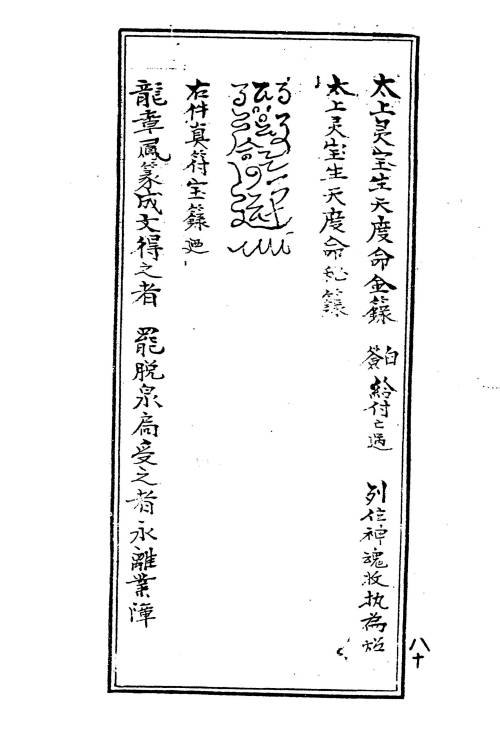 太上灵宝生天度命金籙 白簽 給付亡过 列位神魂收执為炤
太上灵宝生天度命秘籙
右件真符宝籙廻
龍章鳳篆成文得之者 罷脱泉扃受之者永離業障
八十